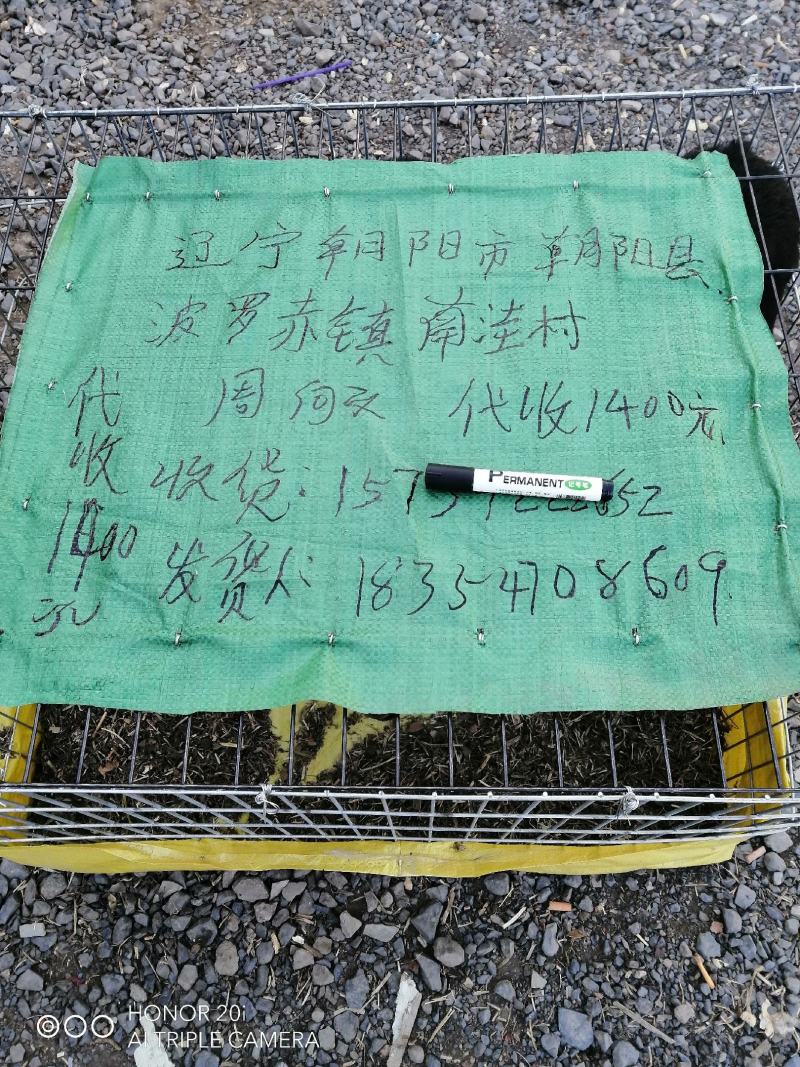 辽宁朝阳市朝阳县
波罗赤镇南洼村
周 代收1400元
代收1400元
收货:
PERMANENT
发货人: 18354708609
HONOR 20i
AI TRIPLE CAMERA